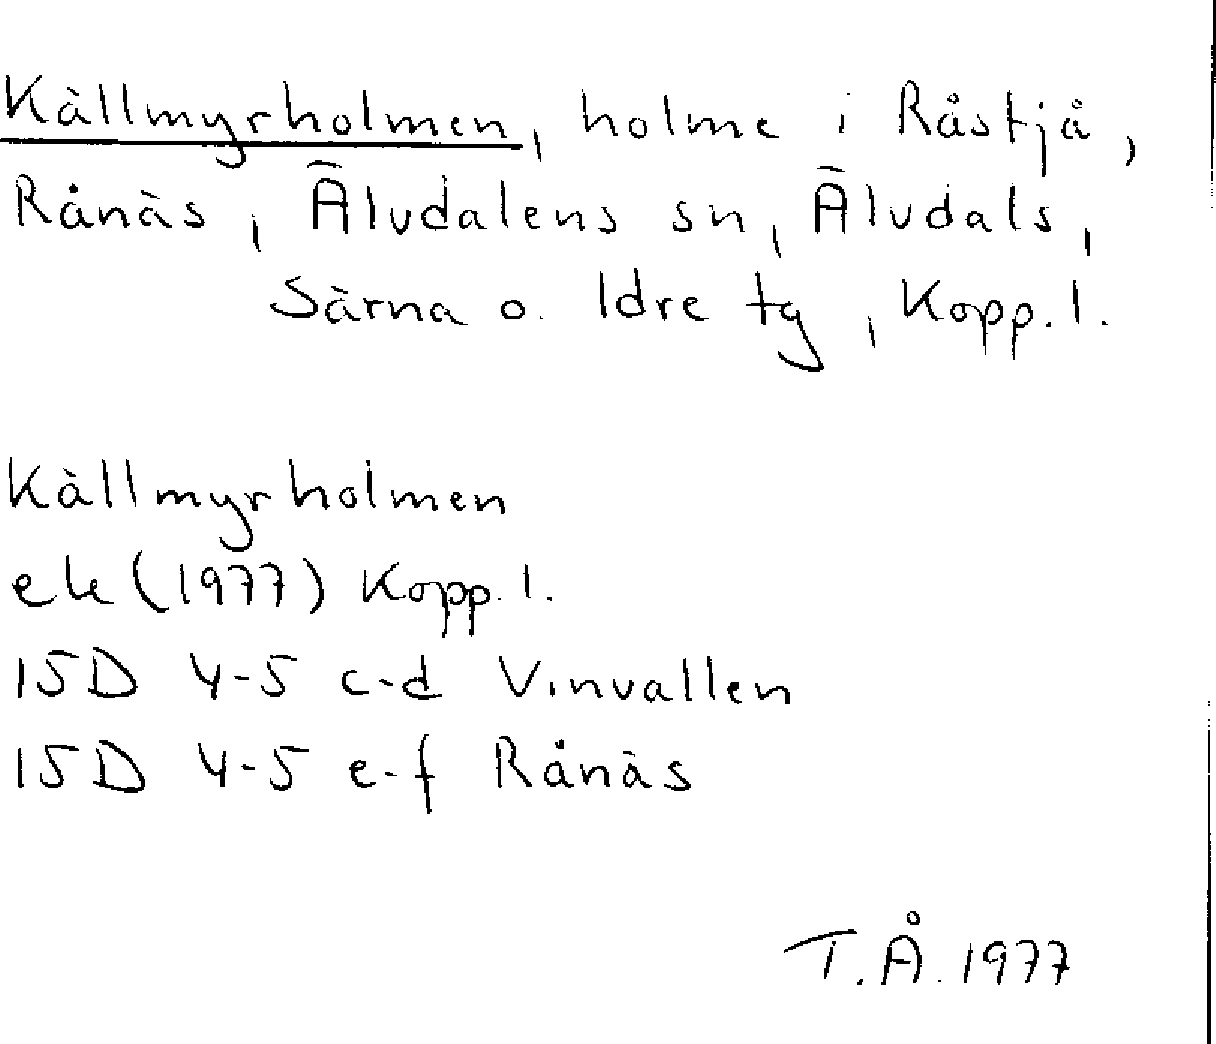 Källmyrholmen, holme i Råstjå,
Rånäs, Älvdalens sn, Älvdals,
Särna o. Idre tg, Kopp. l.
Källmyrholmen
ek (1977) Kopp. l.
15D 4-5 c-d Vinvallen
15D 4-5 e-f Rånäs
T.Å. 1977